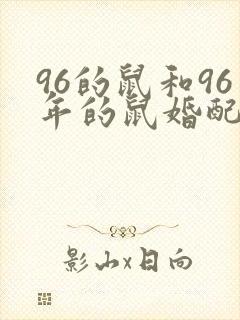 96的鼠和96
年的鼠婚配
影山x日向